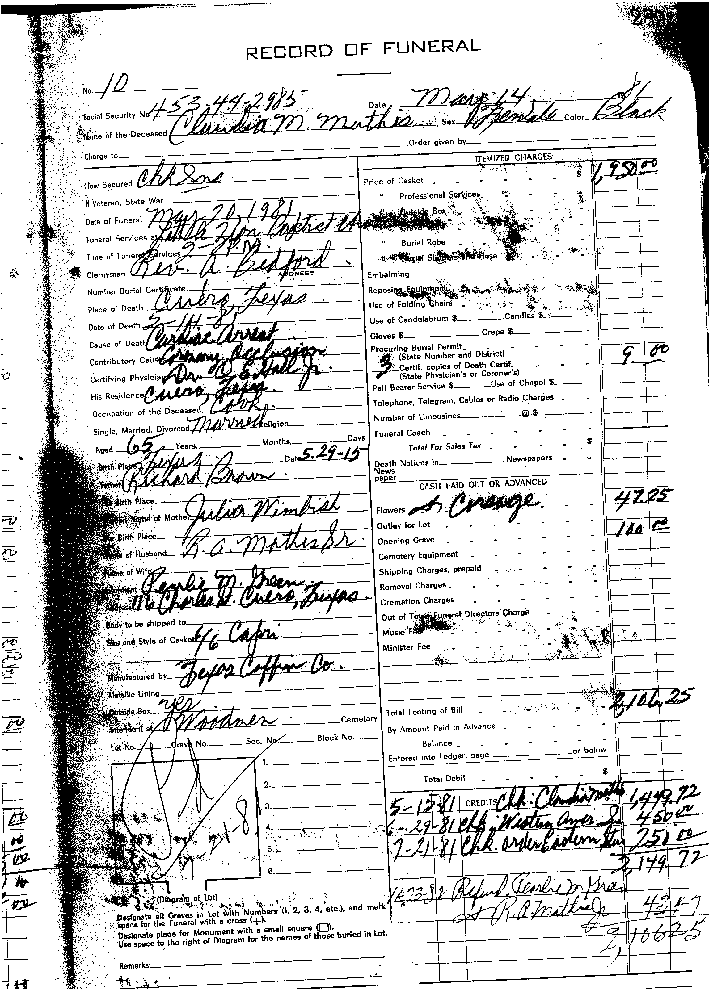 RECORD OF FUNERAL
No. 10
Social Security No. 453-44-2985 Date May 14
Name of the Deceased Claudia M. Mathis Sex Female Color Black
Charge to Order given by
ITEMIZED CHARGES
How Secured Chk Ins
Price of Casket $ 1,950 00
If Veteran, State War
" Professional Services
Date of Funeral May 20, 1981
Funeral Services at Zion Baptist
Time of Funeral Services
" Burial Robe
Clergyman Rev. A. Bedford
Embalming
Number Burial Certificate
Place of Death Cuero, Texas
Use of Folding Chairs
Date of Death
Use of Candelabrum $ Candles $
Cause of Death Cardiac Arrest
Gloves $ Crepe $
Contributory Cause Coronary Occlusion
Procuring Burial Permit
(State Number and District)
3 Certif. copies of Death Certif. 9 00
(State Physician's or Coroner's)
Certifying Physician Dr.
His Residence Cuero, Texas
Pall Bearer Service $ Use of Chapel $
Occupation of the Deceased Cook
Telephone, Telegram, Cables or Radio Charges
Single, Married, Divorced Married Religion
Number of Limousines @ $
Aged 65 Years Months Days
Funeral Coach
Total For Sales Tax $
Birth Place Texas Date 5-29-15
Death Notices in Newspapers
News
paper
Richard Brown
CASH PAID OUT OR ADVANCED
Birth Place
Flowers 47.25
Name of Mother Julia Wimbish
Outlay for Lot 100 00
Birth Place
Opening Grave
of Husband R. A. Mathis Sr.
Cemetery Equipment
Name of Wife
Shipping Charges, prepaid
Pearlie M. Green
Removal Charges
Charles St. Cuero, Texas
Cremation Charges
Body to be shipped to
Out of Town Funeral Directors Charge
Size and Style of Casket 6/6 Capri
Music Fee
Minister Fee
Manufactured by Texas Coffin Co.
Metallic Lining
Outside Box yes
Total Footing of Bill 2,106.25
Interment at Woodmen Cemetery
By Amount Paid in Advance
Lot No. Grave No. Sec. No. Block No.
Balance
Entered into Ledger, page or below
1.
Total Debit $
2.
3.
5-15-81 CREDITS Chk. Claudia Mathis 1,449.72
4.
6-29-81 Chk. Western Amer 450 00
5.
7-21-81 Chk. Order Eastern Star 250 00
6.
2,149 72
(Diagram of Lot)
Refund Pearlie M. Green
Designate all Graves in Lot with Numbers (1, 2, 3, 4, etc.), and mark
space for the Funeral with a cross (+).
R. A. Mathis Jr. 43 47
Designate place for Monument with a small square
2,106 25
Use space to the right of Diagram for the names of those buried in Lot.
Remarks: